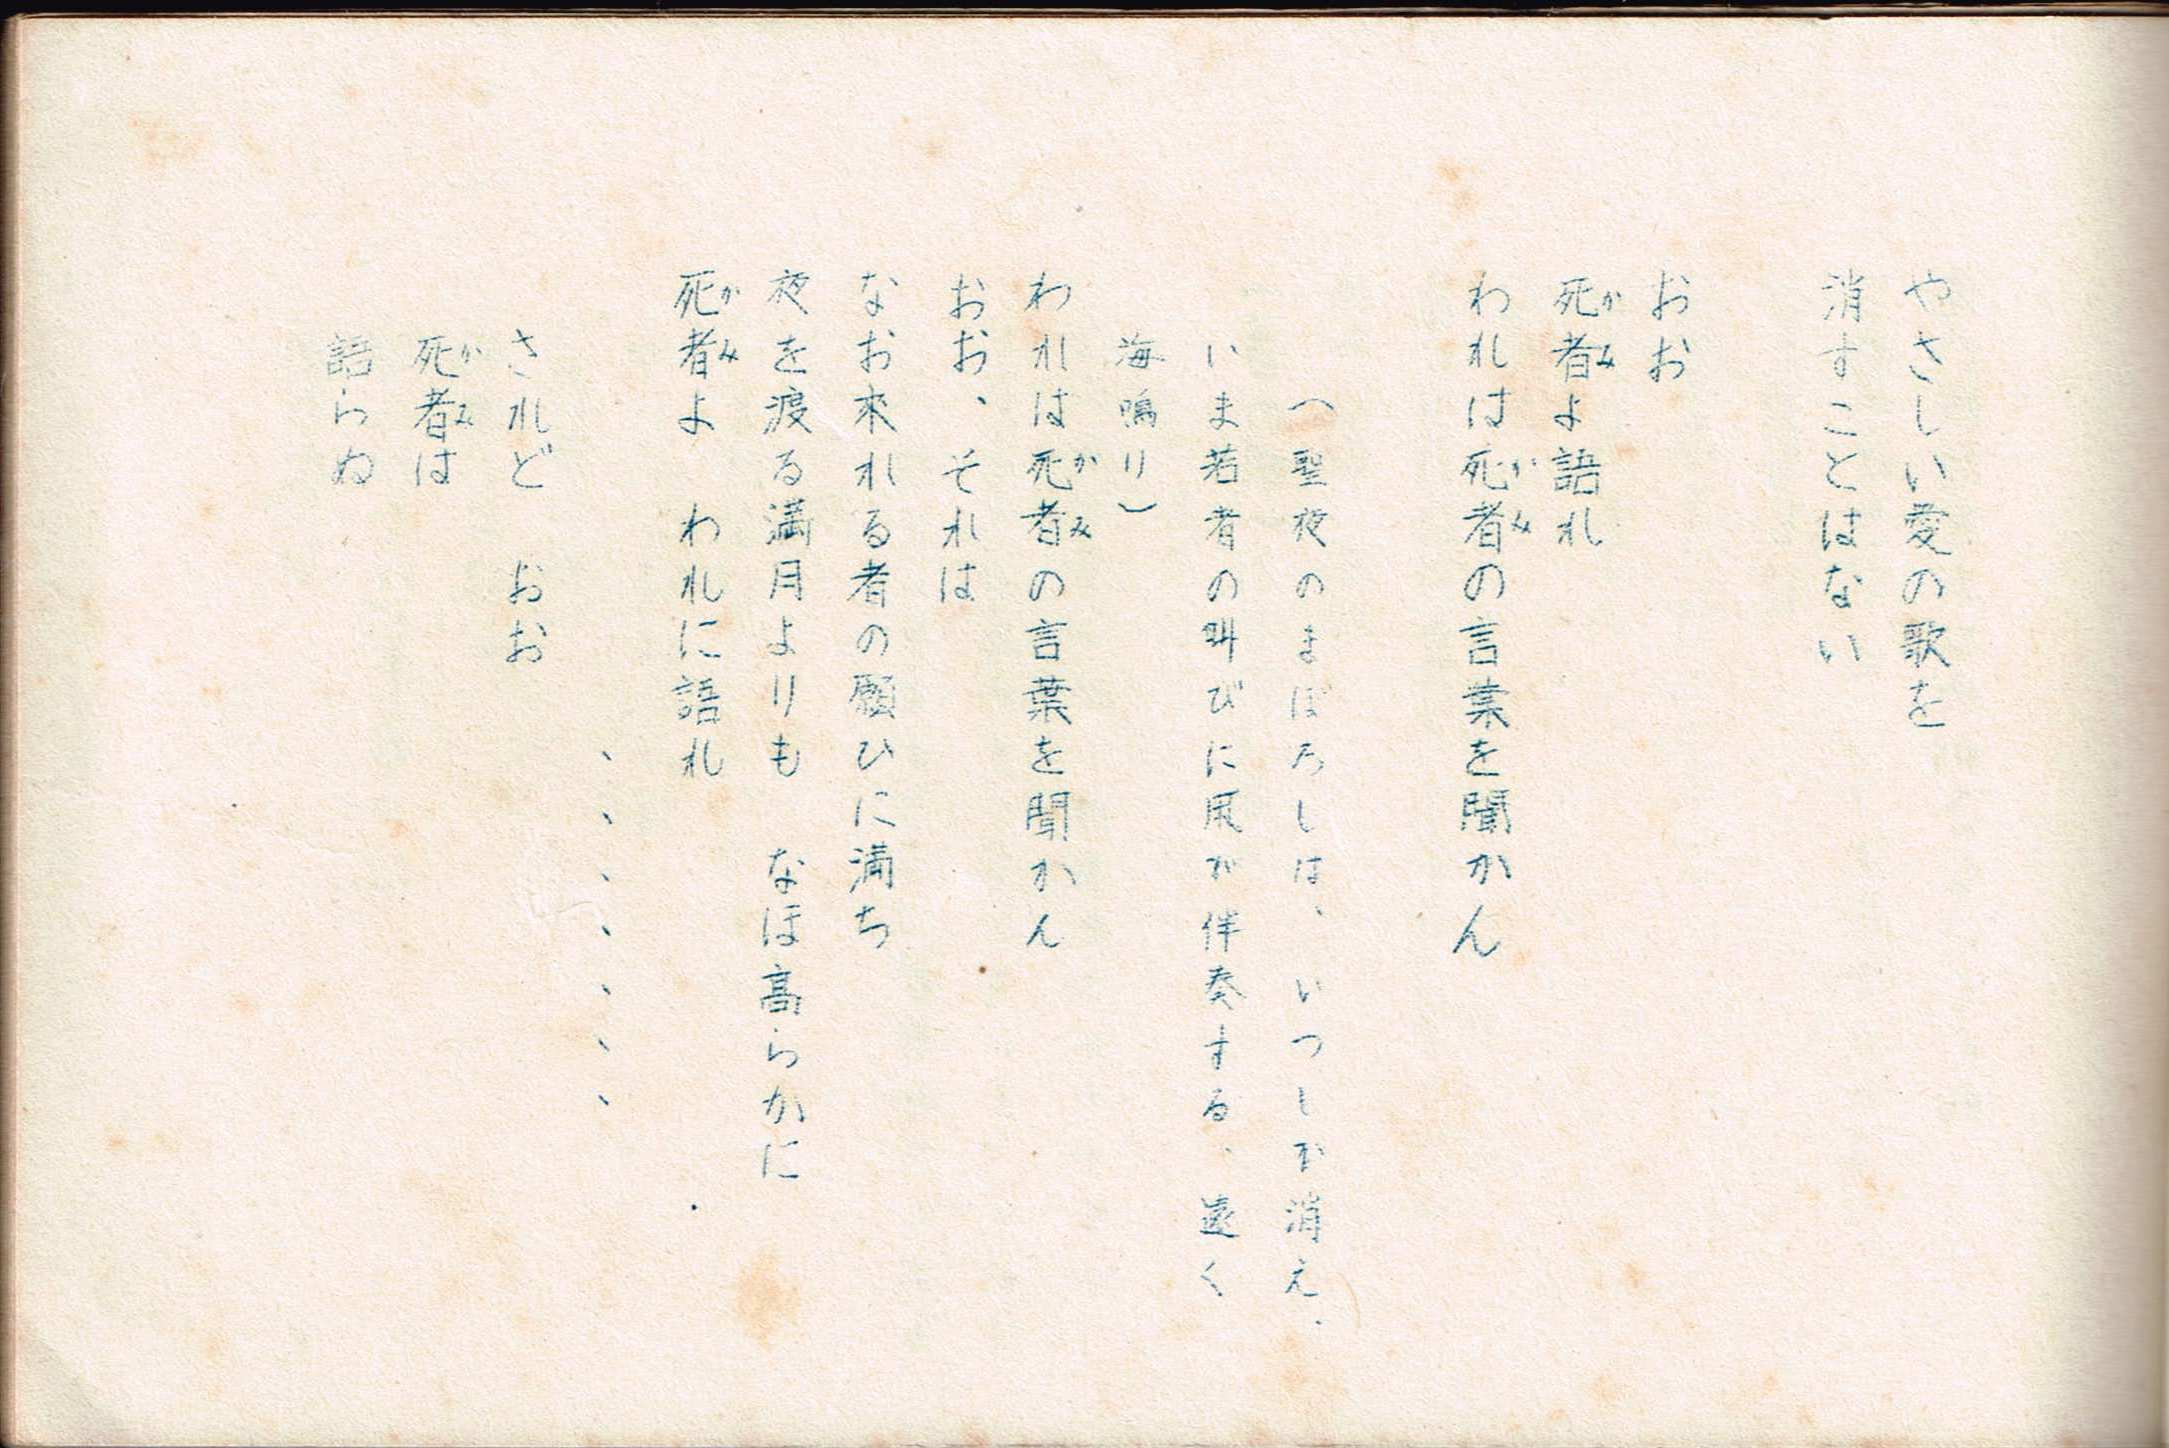 やさしい愛の歌を
消すことはない
おお
死者よ語れ
われは死者の言葉を聞かん
(聖夜のまぼろしは、いつしか消え、
いま若者の叫びに風が伴奏する、遠く
海鳴り)
われは死者の言葉を聞かん
おお、それは
なお来れる者の願ひに満ち
夜を渡る満月よりも　なほ高らかに
死者よ　われに語れ
、、、、、、、
されど　おお
死者は
語らぬ